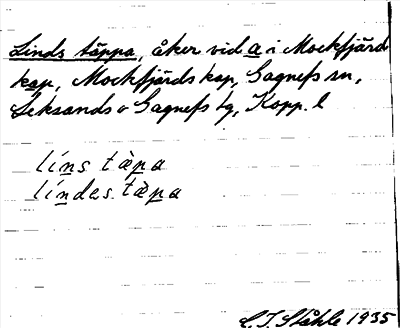 Linds täppa, åker vid a i Mockfjärds
kap, Mockfjärds kap, Gagnefs sn,
Leksands o Gagnefs tg, Kopp. l
líns tä̀pa
líndas tä̀pa
C.I. Ståhle 1935